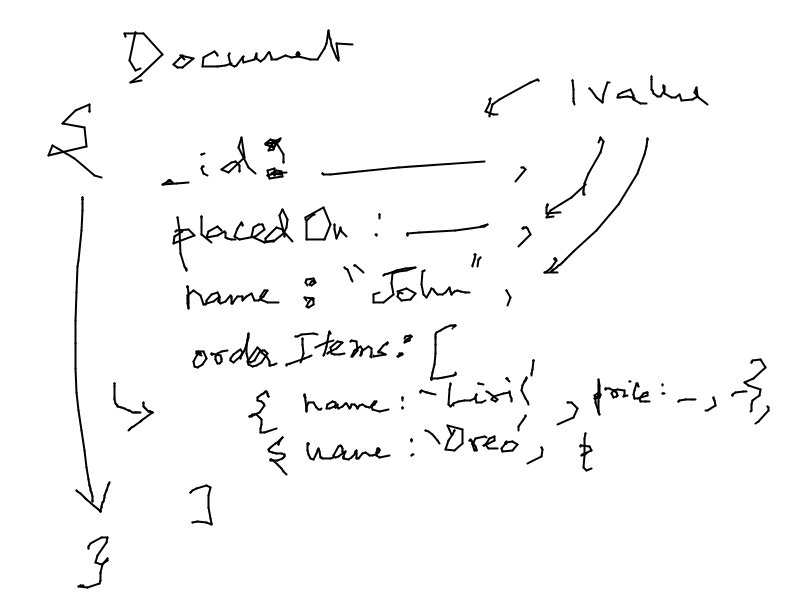 Document
1 value
{
_id: ____ ,
placedOn : ____ ,
name : "John" ,
orderItems: [
{ name: 'Liril' , price: _ , _ },
{ name : 'Oreo' , p
]
}